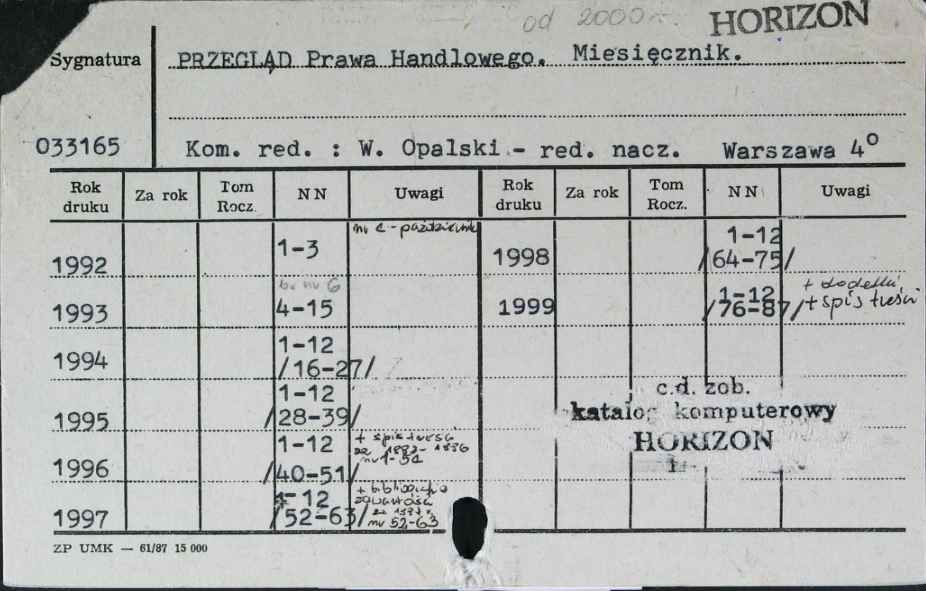 od 2000 r. HORIZON
Sygnatura PRZEGLĄD Prawa Handlowego. Miesięcznik.
033165 Kom. red. : W. Opalski - red. nacz. Warszawa 4°
Rok druku Za rok Tom Rocz. NN Uwagi Rok druku Za rok Tom Rocz. NN Uwagi
1992 1-3 nr - październik 1998 1-12 /64-75/
1993 nr 6 4-15 1999 1-12 /76-87/ + dodatki + spis treści
1994 1-12 /16-27/
1995 1-12 /28-39/
c.d. zob.
katalog komputerowy
HORIZON
1996 1-12 /40-51/ + spis treści za 1992-1996 nr 1-51
1997 1-12 /52-63/ + bibliografia zawartości za 1997 r. nr 52-63
ZP UMK — 61/87 15 000